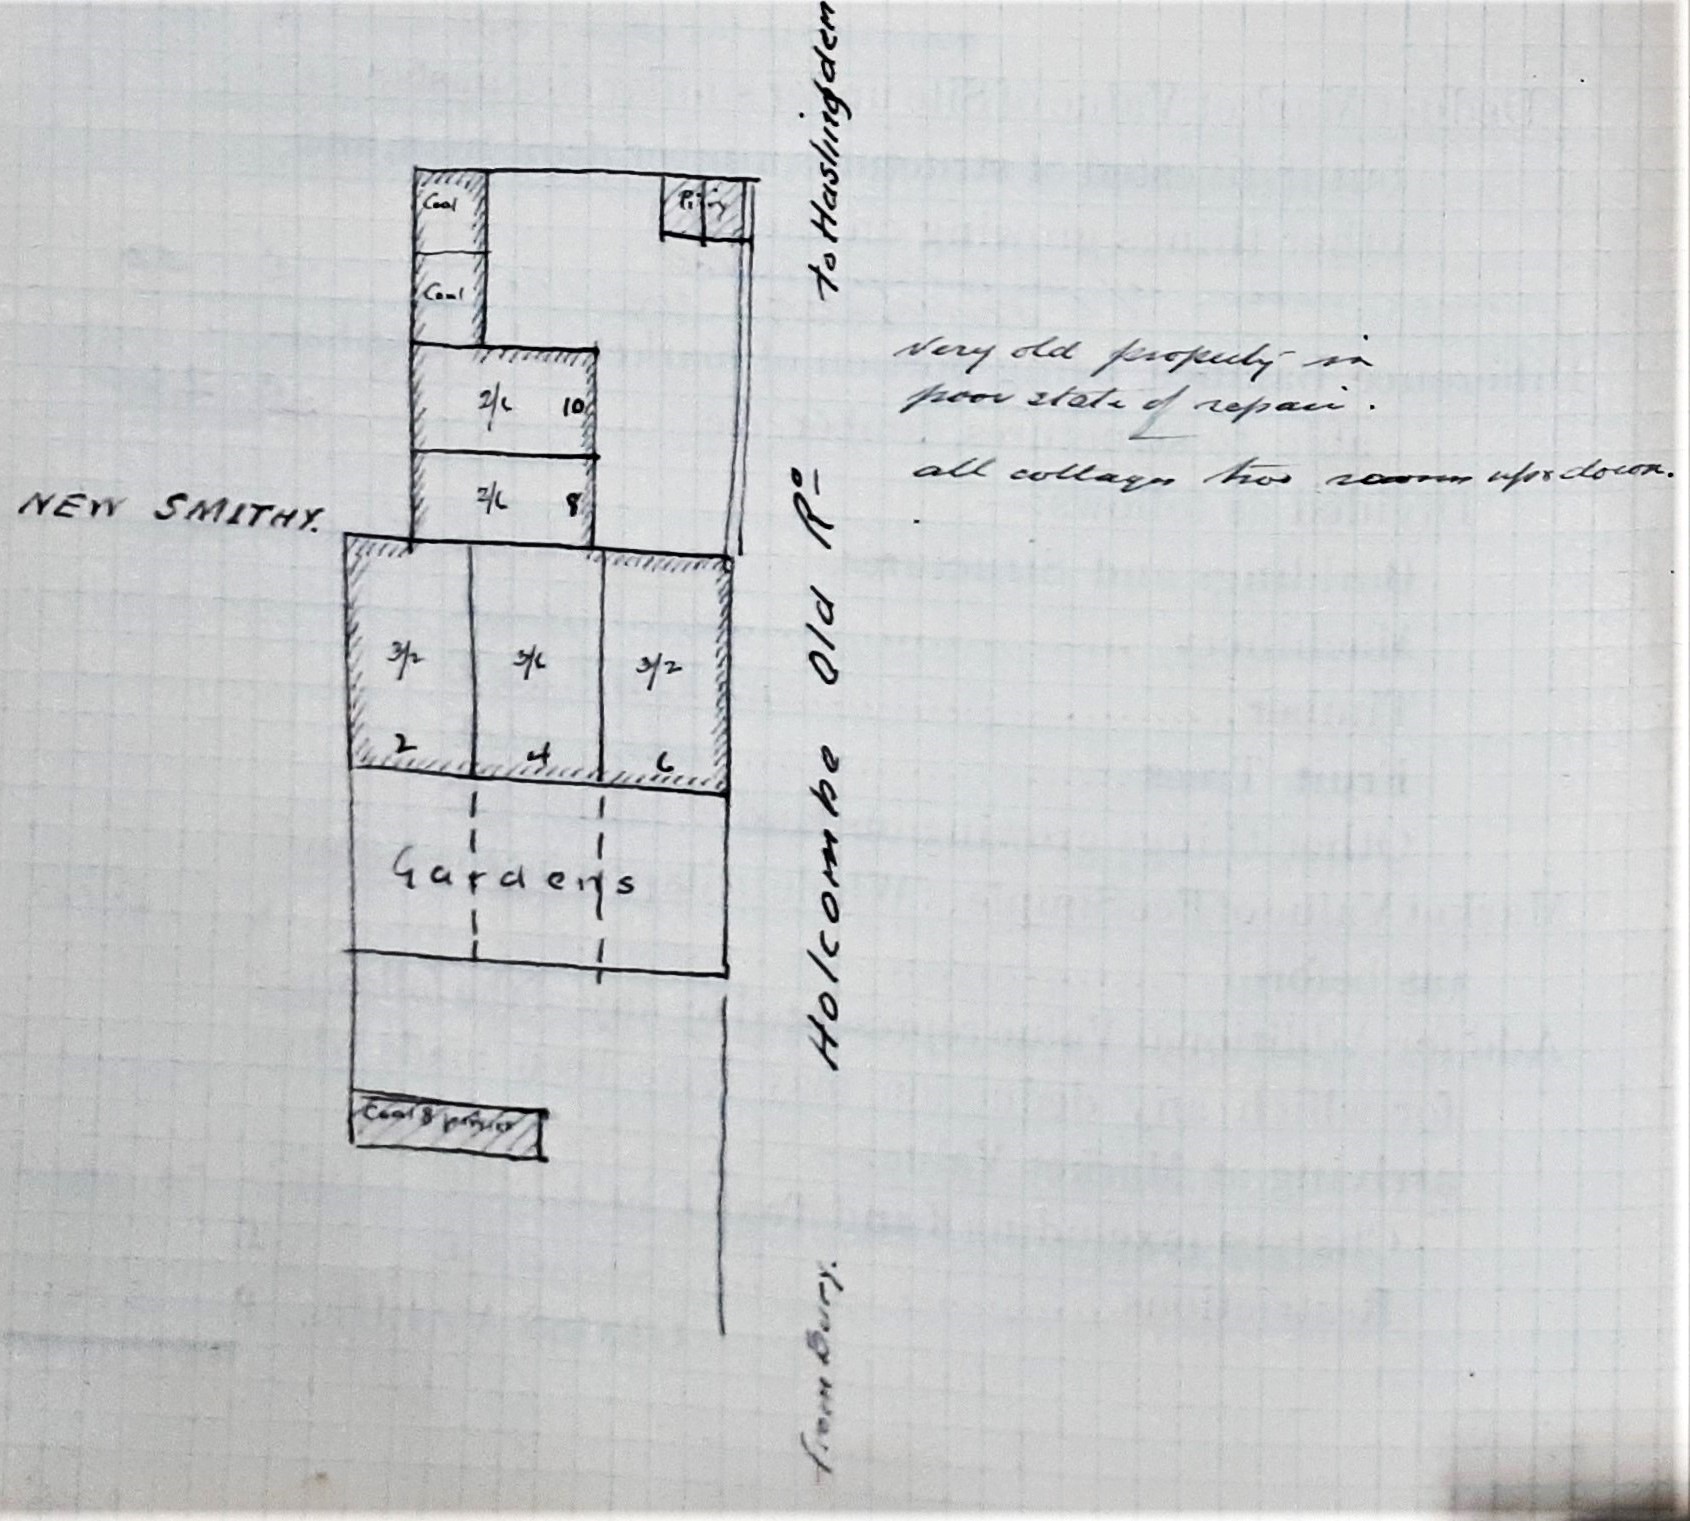 to Haslingden
Coal
Privy
Coal
Very old property in
poor state of repair.
2/6 10
all cottages two rooms up & down.
2/6 8
NEW SMITHY.
Holcombe Old Rd
3/2 3/6 3/2
2 4 6
Gardens
Coal & privies
From Bury.